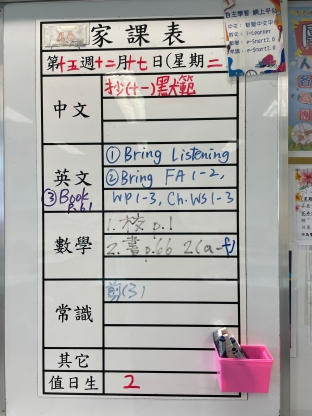 家課表
第十五週十二月十七日(星期二
中文
抄(十一)默範
英文
① Bring Listening
② Bring FA 1-2,
WP 1-3, Ch.WS 1-3
③ Book
P.61
數學
1. 校 p.1
2. 書 p.66 2(a-f)
常識
剪(3)
其它
值日生
2
自主學習 網上平台